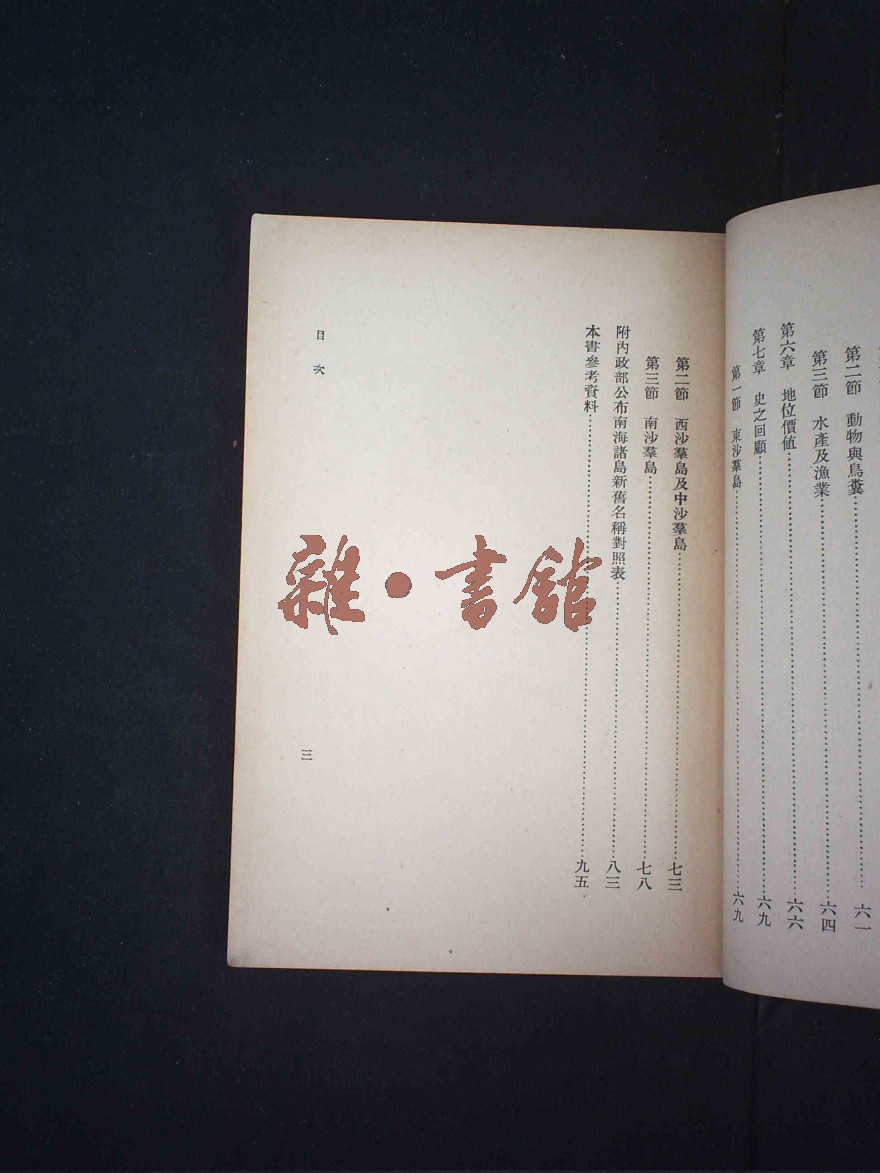 第二節　動物與鳥糞……六一
第三節　水產及漁業……六四
第六章　地位價值……六六
第七章　史之回顧……六九
第一節　東沙羣島……六九
第二節　西沙羣島及中沙羣島……七三
第三節　南沙羣島……七八
附內政部公布南海諸島新舊名稱對照表……八三
本書參考資料……九五
目次
三
雜·書館